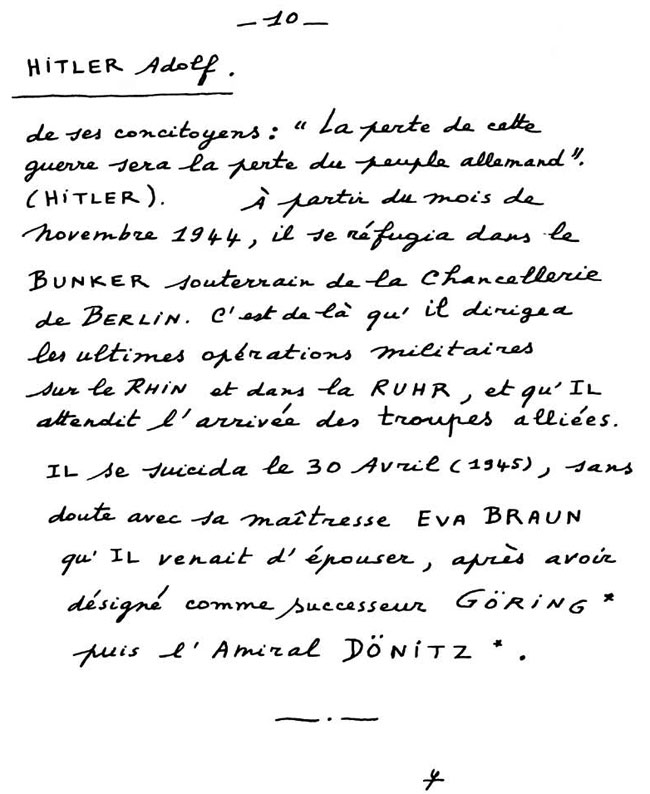 — 10 —
HiTLER Adolf.
de ses concitoyens : " La perte de cette
guerre sera la perte du peuple allemand ".
(HiTLER). À partir du mois de
novembre 1944, il se réfugia dans le
BUNKER souterrain de la Chancellerie
de BERLiN. C'est de là qu'il dirigea
les ultimes opérations militaires
sur le RHiN et dans la RUHR, et qu'IL
attendit l'arrivée des troupes alliées.
IL se suicida le 30 Avril (1945), sans
doute avec sa maîtresse EVA BRAUN
qu'IL venait d'épouser, après avoir
désigné comme successeur GÖRiNG *
puis l'Amiral DÖNiTZ *.